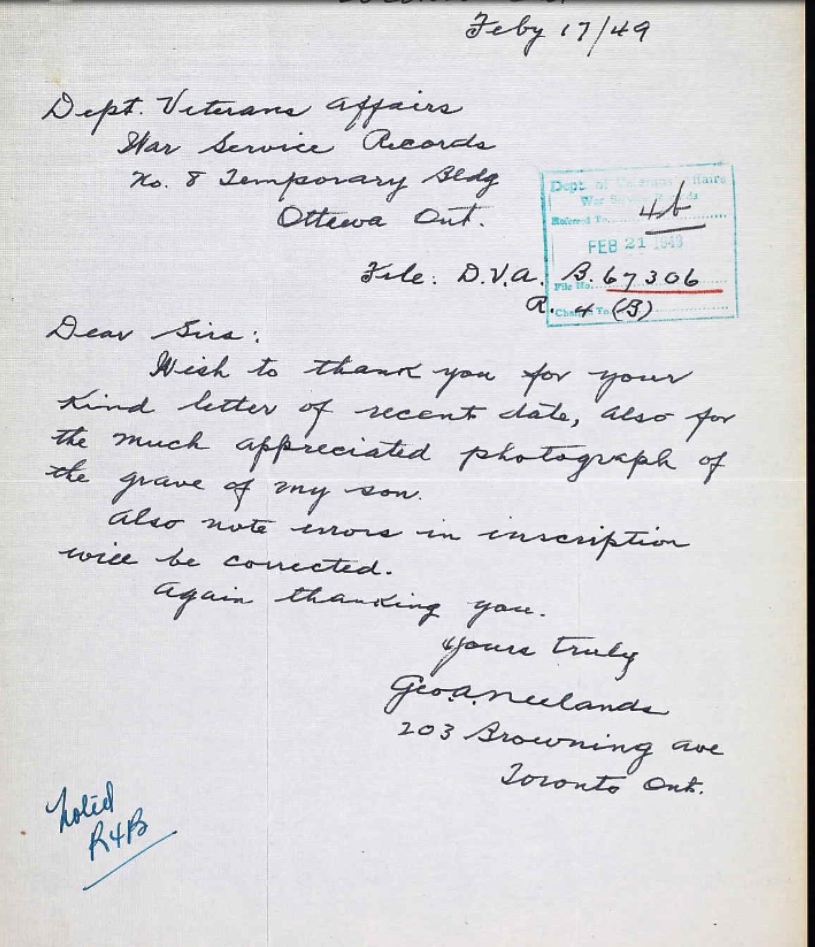 Feby 17/49
Dept. Veterans Affairs
War Service Records
No. 8 Temporary Bldg
Ottawa Ont.
Dept. of Veterans Affairs
War Service Records
Referred To 4b
FEB 21 1949
File No.
Charge To
File: D.V.A. B. 67306
R. 4 (B)
Dear Sirs:
Wish to thank you for your
kind letter of recent date, also for
the much appreciated photograph of
the grave of my son.
Also note errors in inscription
will be corrected.
Again thanking you.
Yours truly
Geo. A. Neelands
203 Browning Ave
Toronto Ont.
Noted
R4B